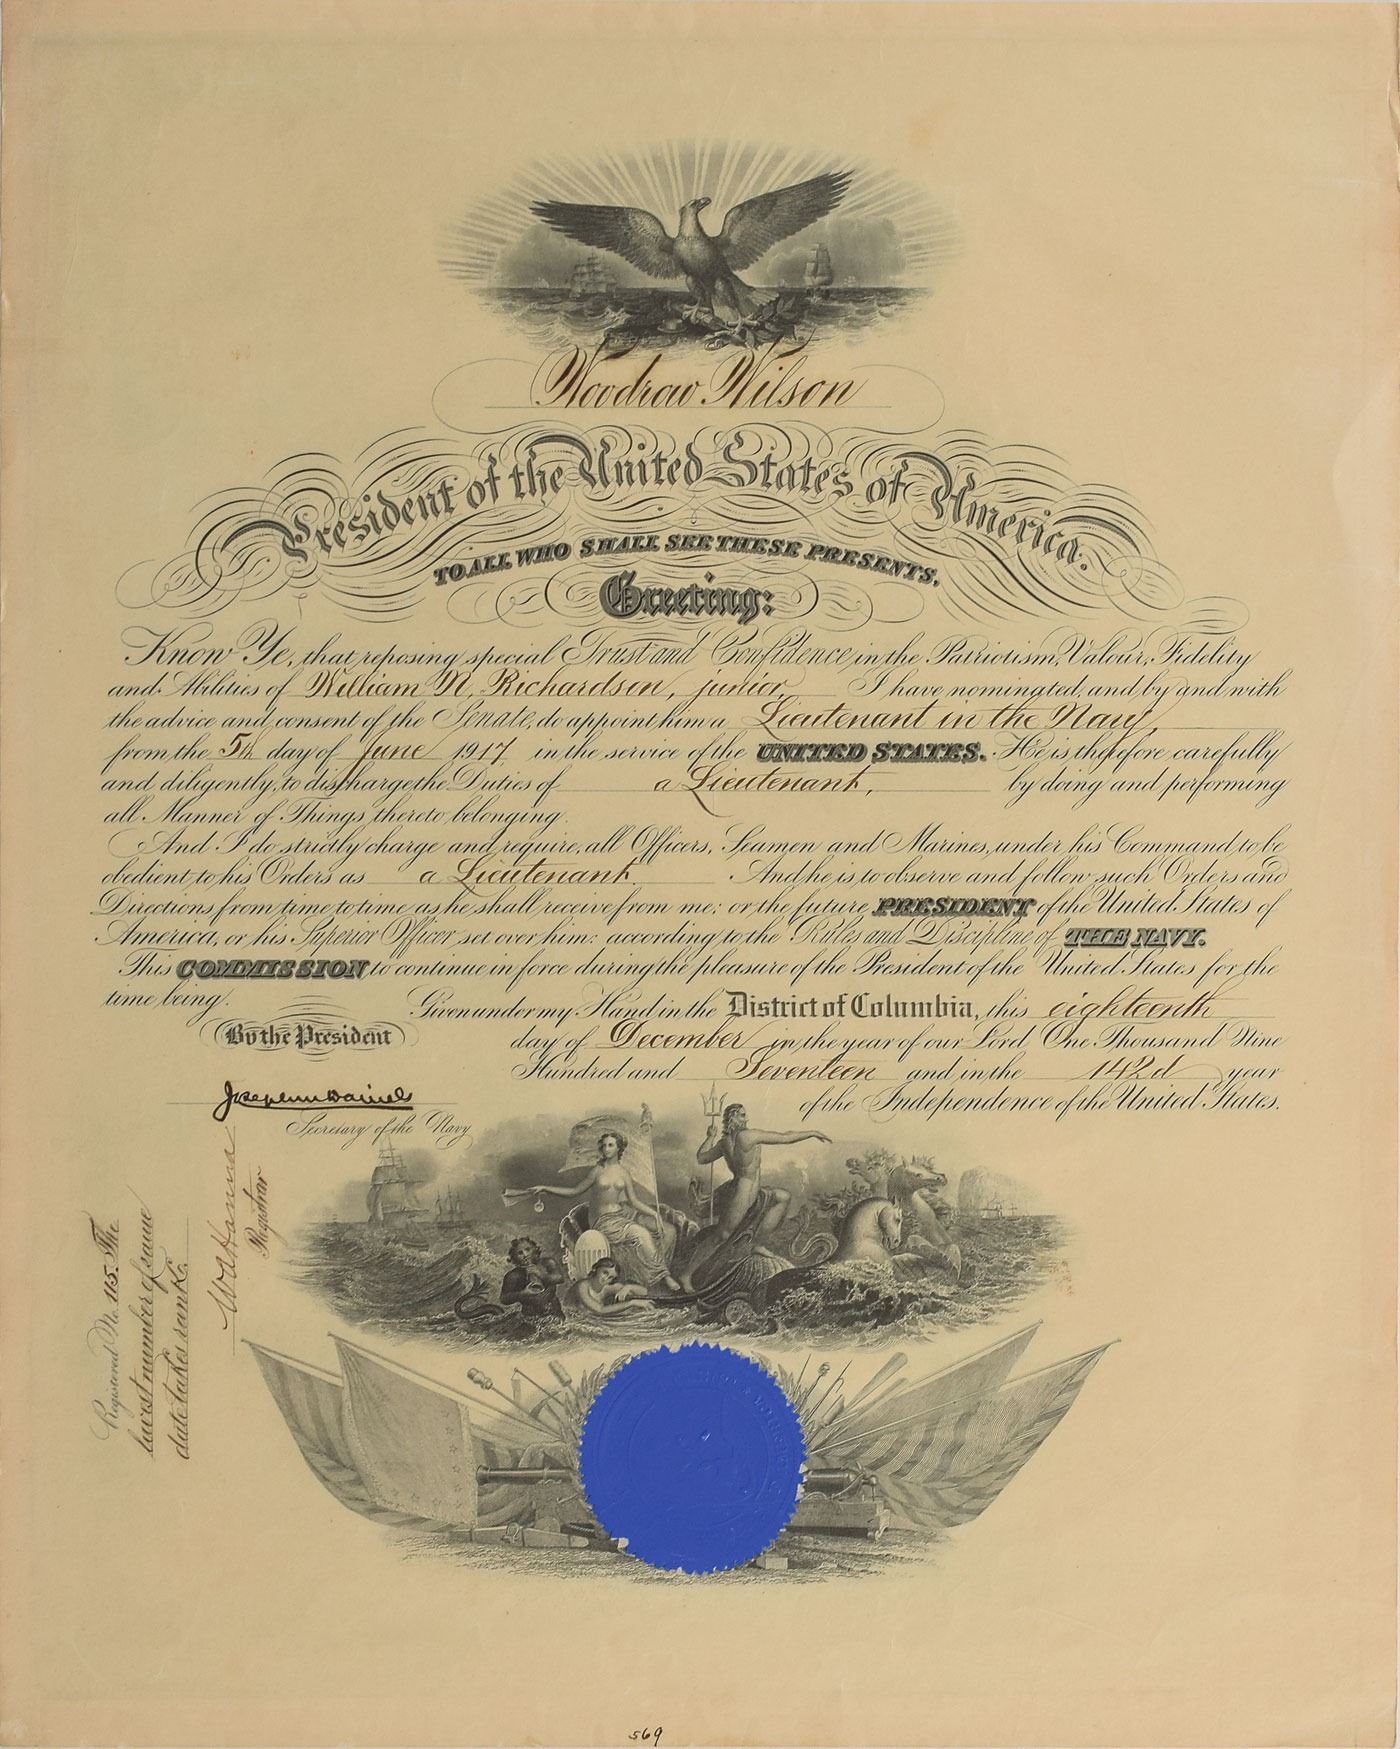 Woodrow Wilson
President of the United States of America.
TO ALL WHO SHALL SEE THESE PRESENTS,
Greeting:
Know Ye, that reposing special Trust and Confidence in the Patriotism, Valour, Fidelity
and Abilities of William N. Richardson, junior, I have nominated, and by and with
the advice and consent of the Senate, do appoint him a Lieutenant in the Navy,
from the 5th day of June 1917 in the service of the UNITED STATES. He is therefore carefully
and diligently to discharge the Duties of a Lieutenant, by doing and performing
all Manner of Things thereto belonging.
And I do strictly charge and require, all Officers, Seamen and Marines, under his Command to be
obedient to his Orders as a Lieutenant. And he is to observe and follow such Orders and
Directions from time to time as he shall receive from me; or the future PRESIDENT of the United States of
America, or his Superior Officer set over him: according to the Rules and Discipline of THE NAVY.
This COMMISSION to continue in force during the pleasure of the President of the United States for the
time being.
Given under my Hand in the District of Columbia, this eighteenth
day of December in the year of our Lord One Thousand Nine
Hundred and Seventeen and in the 142d year
of the Independence of the United States.
By the President
Josephus Daniels
Secretary of the Navy
Registered No. 115. The
lowest number of same
date takes rank.
Registrar
569